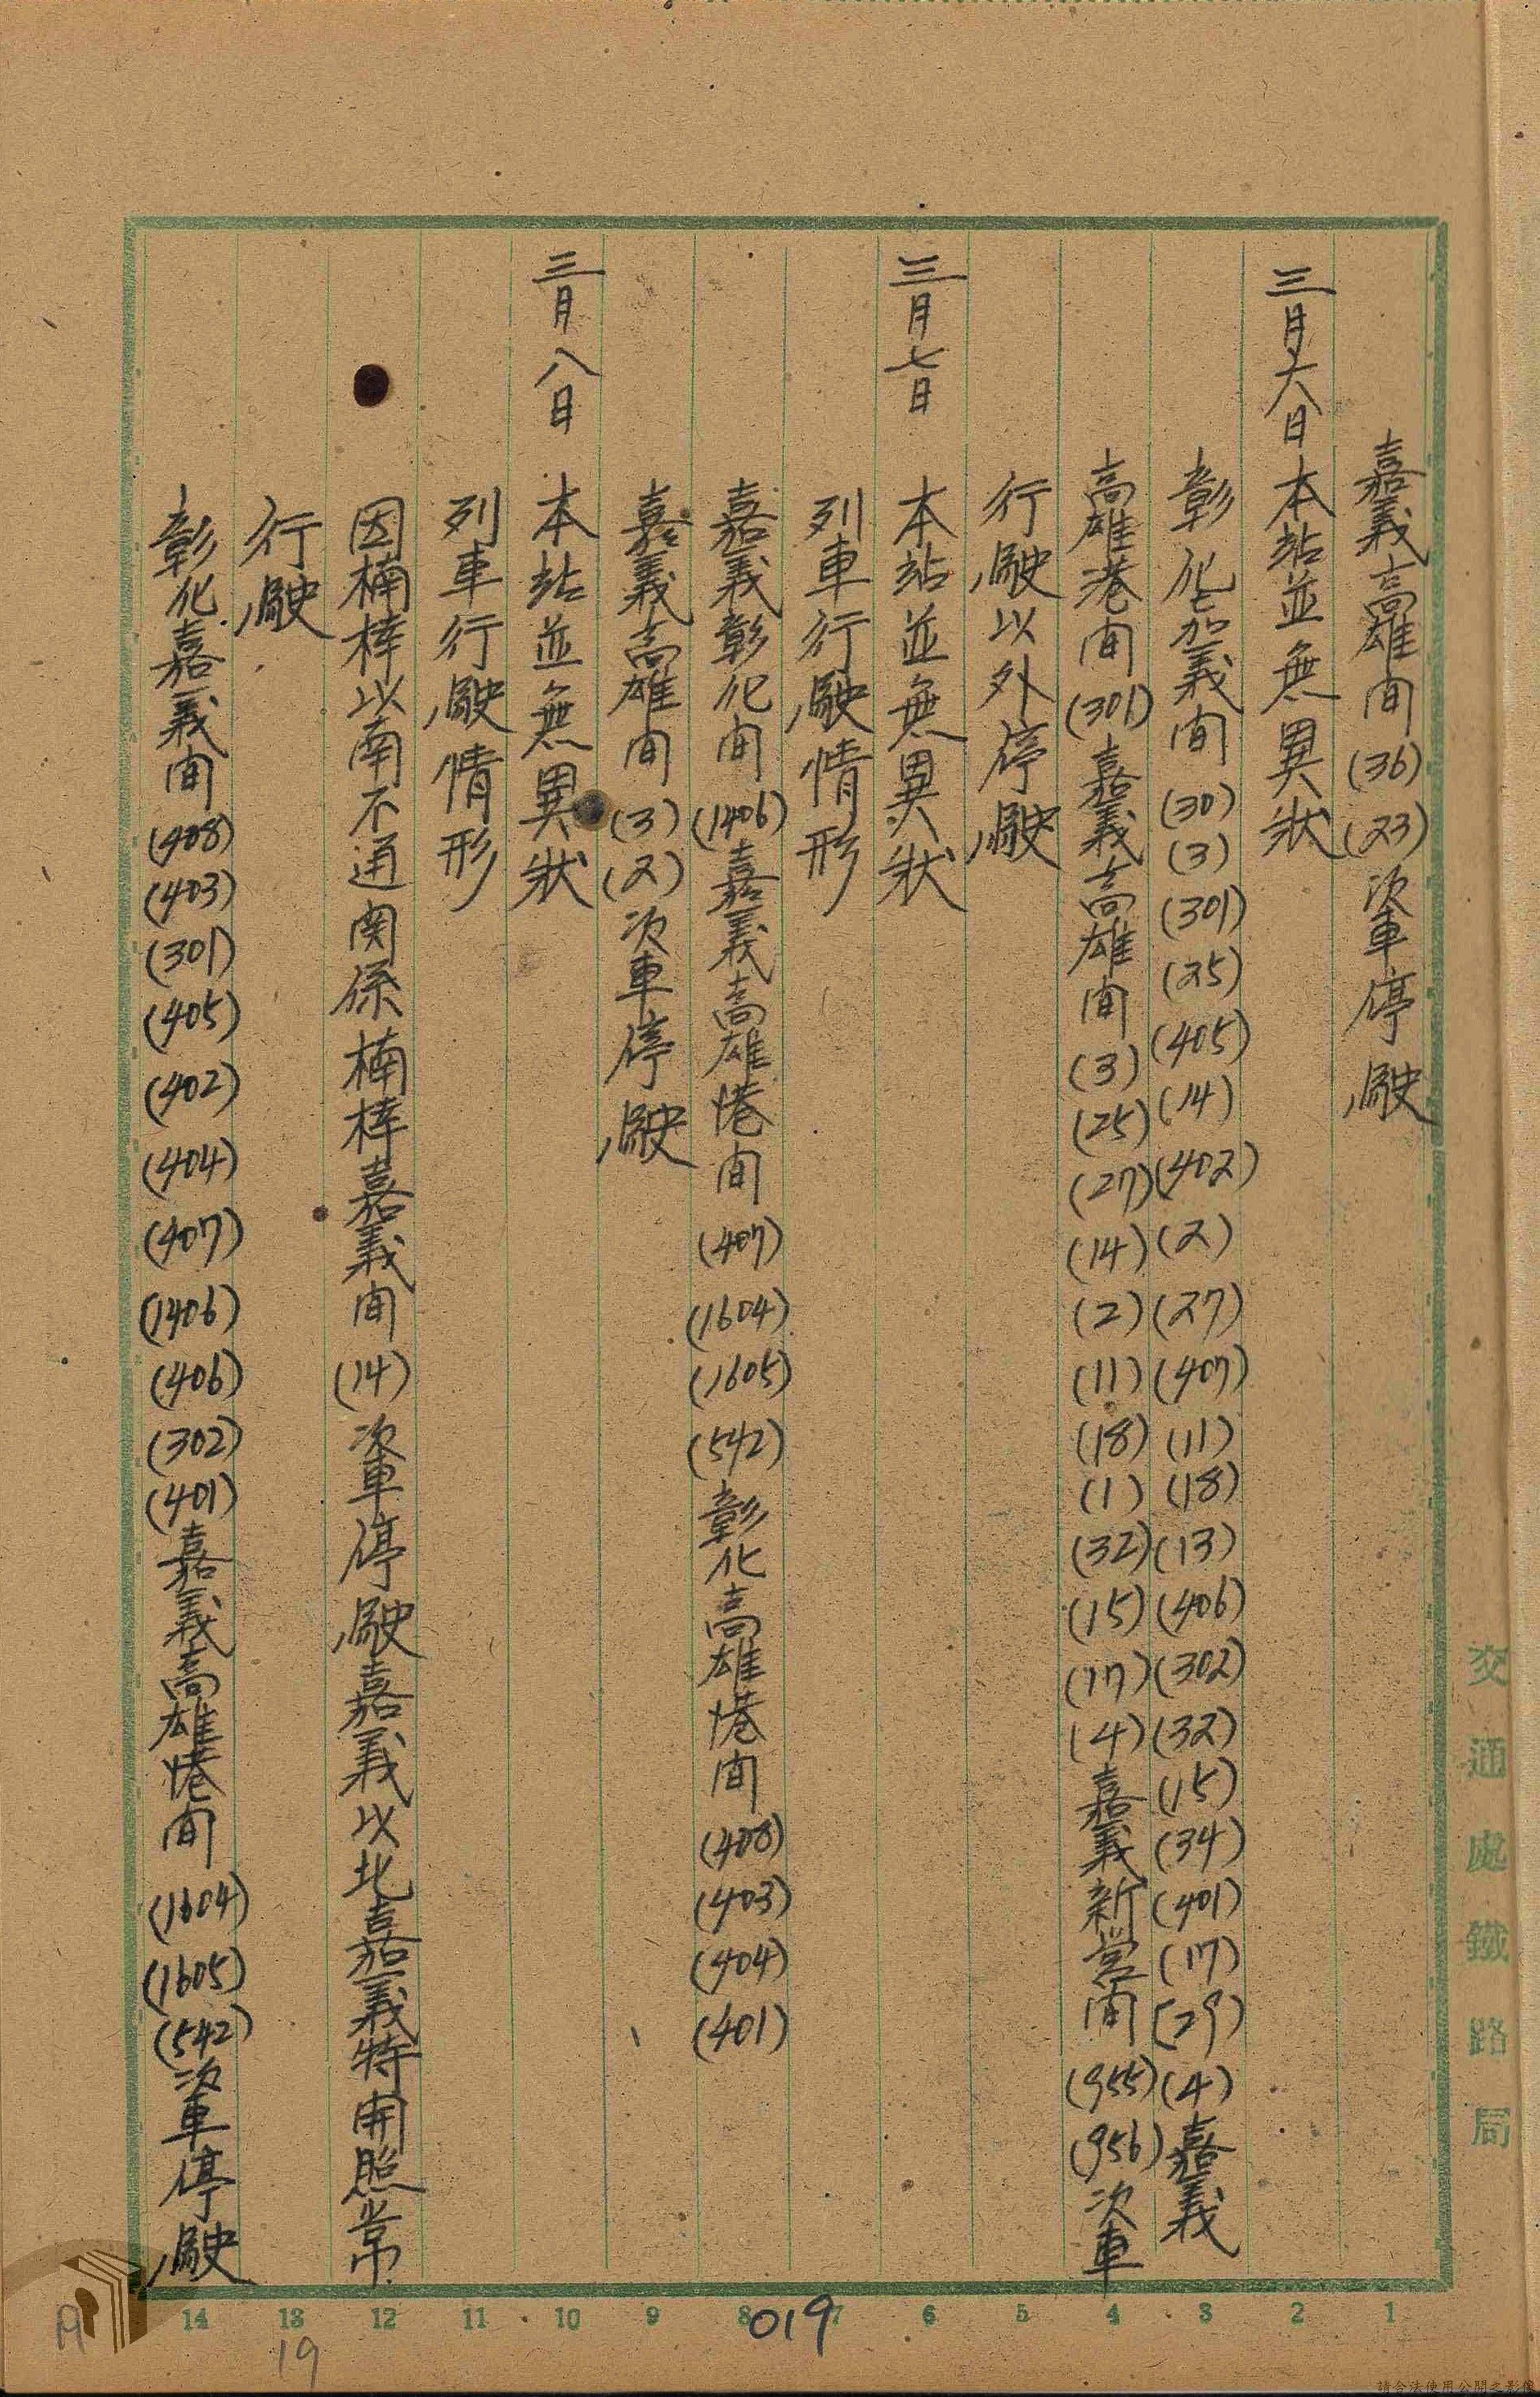 嘉義高雄间(36)(23)次車停駛
三月六日 本站並無異狀
彰化嘉義间(30)(3)(301)(25)(405)(14)(402)(2)(27)(407)(11)(18)(13)(406)(302)(32)(15)(34)(401)(17)(29)(4)嘉義
高雄港间(301)嘉義高雄间(3)(25)(27)(14)(2)(11)(18)(1)(32)(15)(17)(4)嘉義新営间(955)(956)次車
行駛以外停駛
三月七日 本站並無異狀
列車行駛情形
嘉義彰化间(1406)嘉義高雄港间(407)(1604)(1605)(542)彰化高雄港间(408)(403)(404)(401)
嘉義高雄间(3)(2)次車停駛
三月八日 本站並無異狀
列車行駛情形
因楠梓以南不通関係楠梓嘉義间(14)次車停駛嘉義以北嘉義特開照常
行駛
彰化嘉義间(408)(403)(301)(405)(402)(404)(407)(1406)(406)(302)(401)嘉義高雄港间(1604)(1605)(542)次車停駛
交通處鐵路局
14 13 12 11 10 9 8 7 6 5 4 3 2 1
019
19
A
請合法使用公開之影像